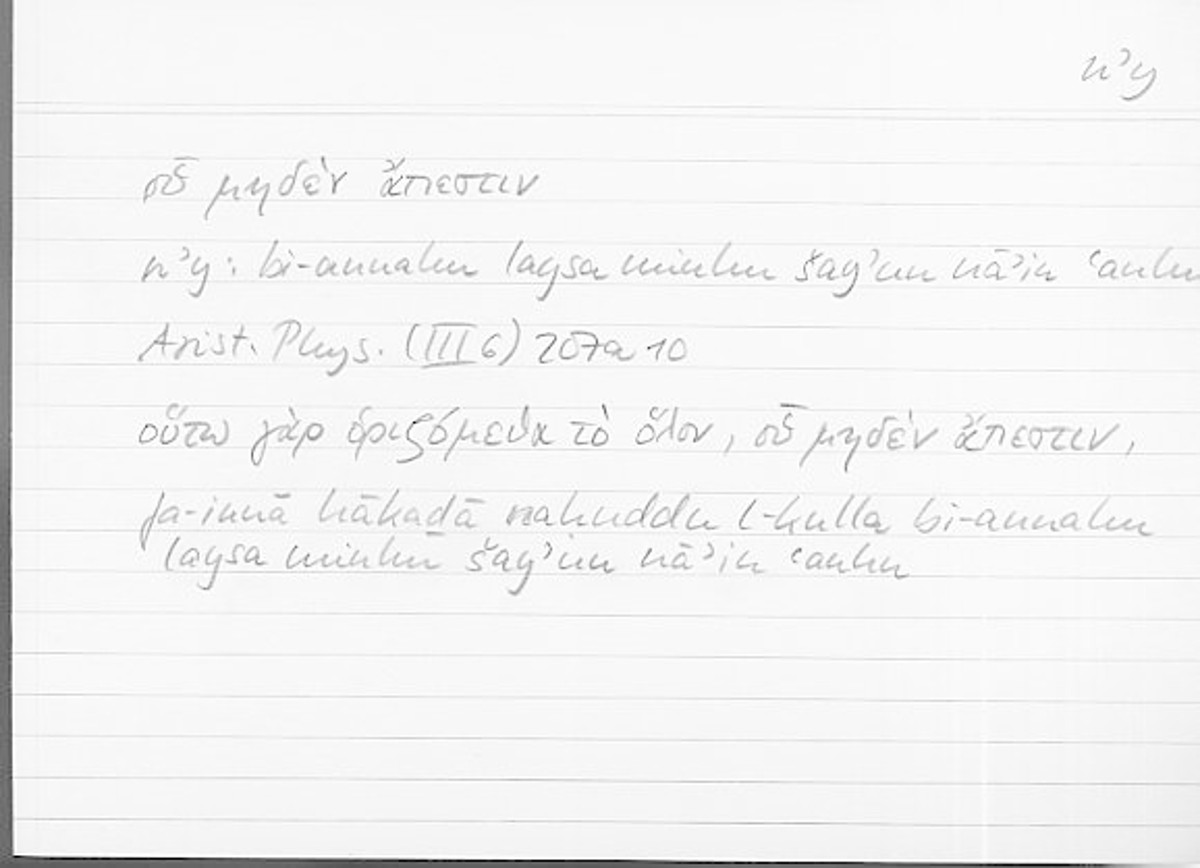 nʾy
οὗ μηδὲν ἄπεστιν
nʾy: bi-annahu laysa minhu šayʾun nāʾin ʿanhu
Arist. Phys. (III 6) 207a 10
οὕτω γὰρ ὁριζόμεθα τὸ ὅλον, οὗ μηδὲν ἄπεστιν,
fa-innā hākaḏā naḥuddu l-kulla bi-annahu
laysa minhū šayʾun nāʾin ʿanhu